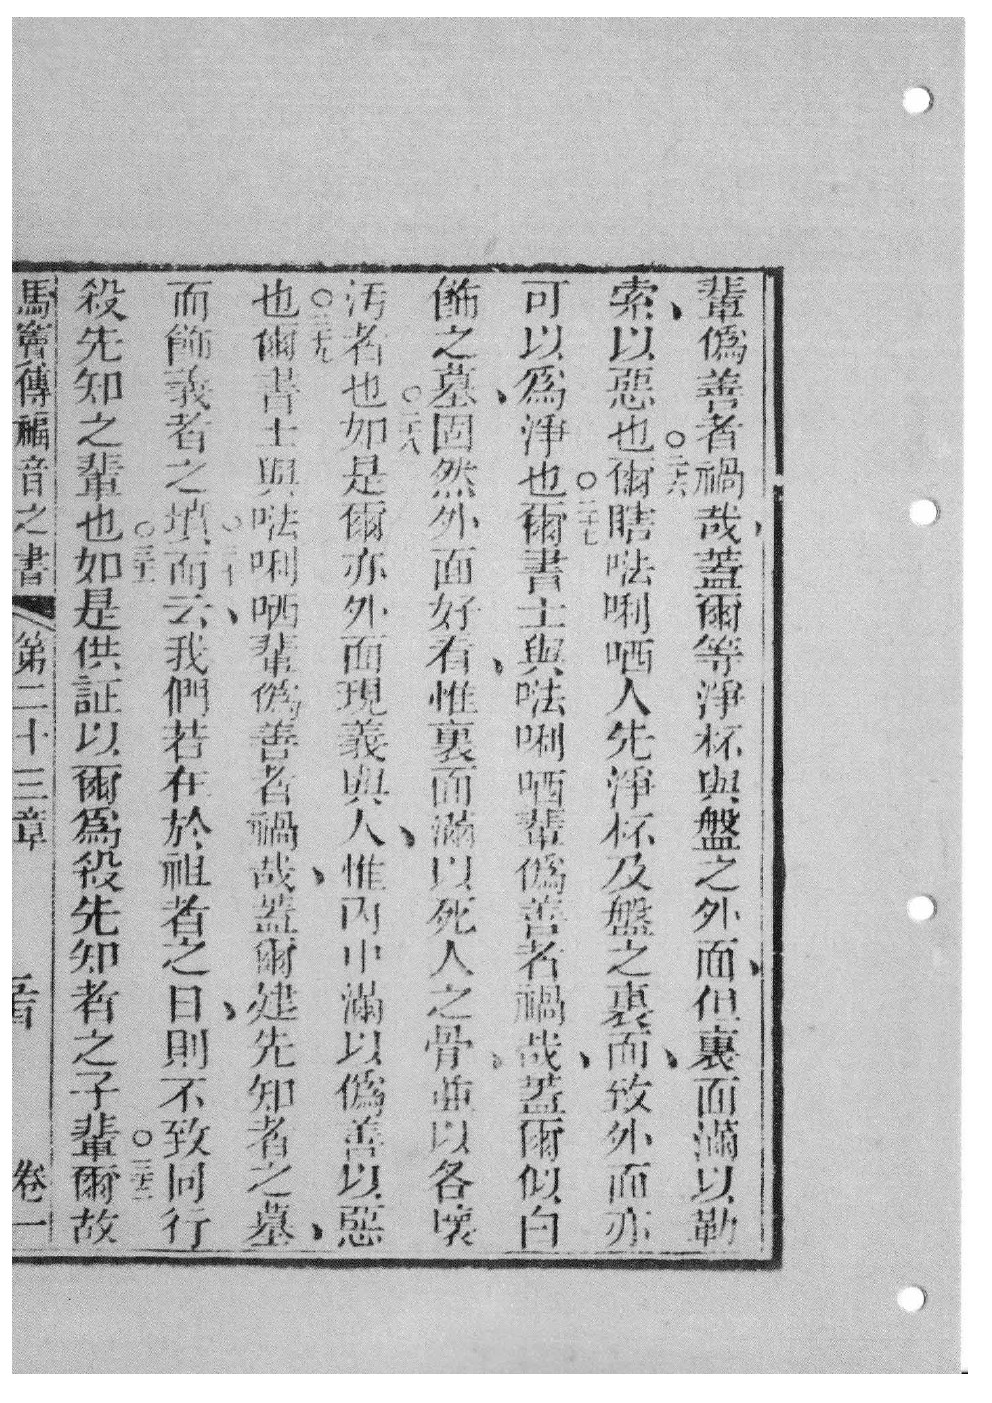 輩僞善者禍哉、蓋爾等淨杯與盤之外面、但裏面滿以勒
索、以惡也○二六爾瞎呠唎哂人先淨杯及盤之裏面、致外面亦
可以爲淨也○二十七爾書士與呠唎哂輩僞善者禍哉、蓋爾似白
飾之墓、固然外面好看、惟裏面滿以死人之骨、並以各壞
汚者也○二八如是爾亦外面現義與人、惟內中滿以僞善以惡
也○二十九爾書士與呠唎哂輩僞善者禍哉、蓋爾建先知者之墓、
而飾義者之墳○三十而云、我們若在於祖者之日、則不致同行
殺先知之輩也○三十一如是供証以爾爲殺先知者之子輩○三十二爾故
馬竇傳福音之書 第二十三章 卷一